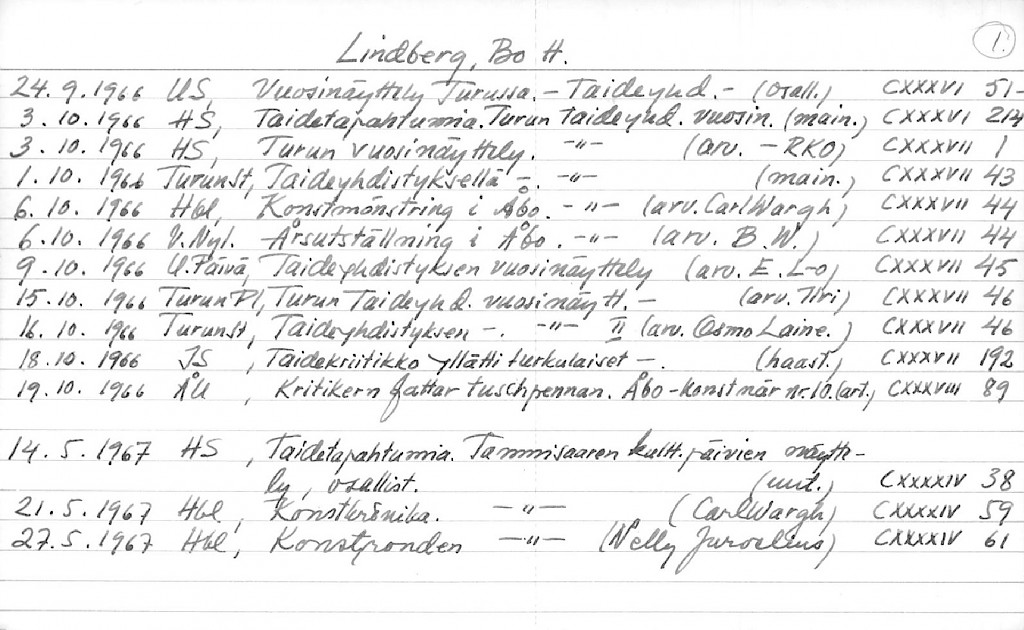 1.
Lindberg, Bo H.
24.9.1966 US, Vuosinäyttely Turussa. - Taideyhd. - (osall.) CXXXVI 51-
3.10.1966 HS, Taidetapahtumia. Turun taideyhd. vuosin. (main.) CXXXVI 214
3.10.1966 HS, Turun vuosinäyttely. -"- (arv. - RKO) CXXXVII 1
1.10.1966 Turunst, Taideyhdistyksellä -. -"- (main.) CXXXVII 43
6.10.1966 Hbl, Konstmönstring i Åbo. -"- (arv. Carl Wargh) CXXXVII 44
6.10.1966 V.Nyl. Årsutställning i Åbo. -"- (arv. B.W.) CXXXVII 44
9.10.1966 U.Päivä, Taideyhdistyksen vuosinäyttely (arv. E. L-o) CXXXVII 45
15.10.1966 Turun Pl, Turun Taideyhd. vuosinäytt. - (arv. Iiri) CXXXVII 46
16.10.1966 Turunst, Taideyhdistyksen -. -"- II (arv. Osmo Laine.) CXXXVII 46
18.10.1966 JS, Taidekriitikko yllätti turkulaiset -. (haast.) CXXXVII 192
19.10.1966 ÅU, Kritikern fattar tuschpennan. Åbo-konstnär nr.10. (art.) CXXXVIII 89
14.5.1967 HS, Taidetapahtumia. Tammisaaren kultt.päivien näytte-
ly, osallist. (uut.) CXXXXIV 38
21.5.1967 Hbl, Konstkrönika. -"- (Carl Wargh) CXXXXIV 59
27.5.1967 Hbl, Konstronden -"- (Nelly Juroelius) CXXXXIV 61